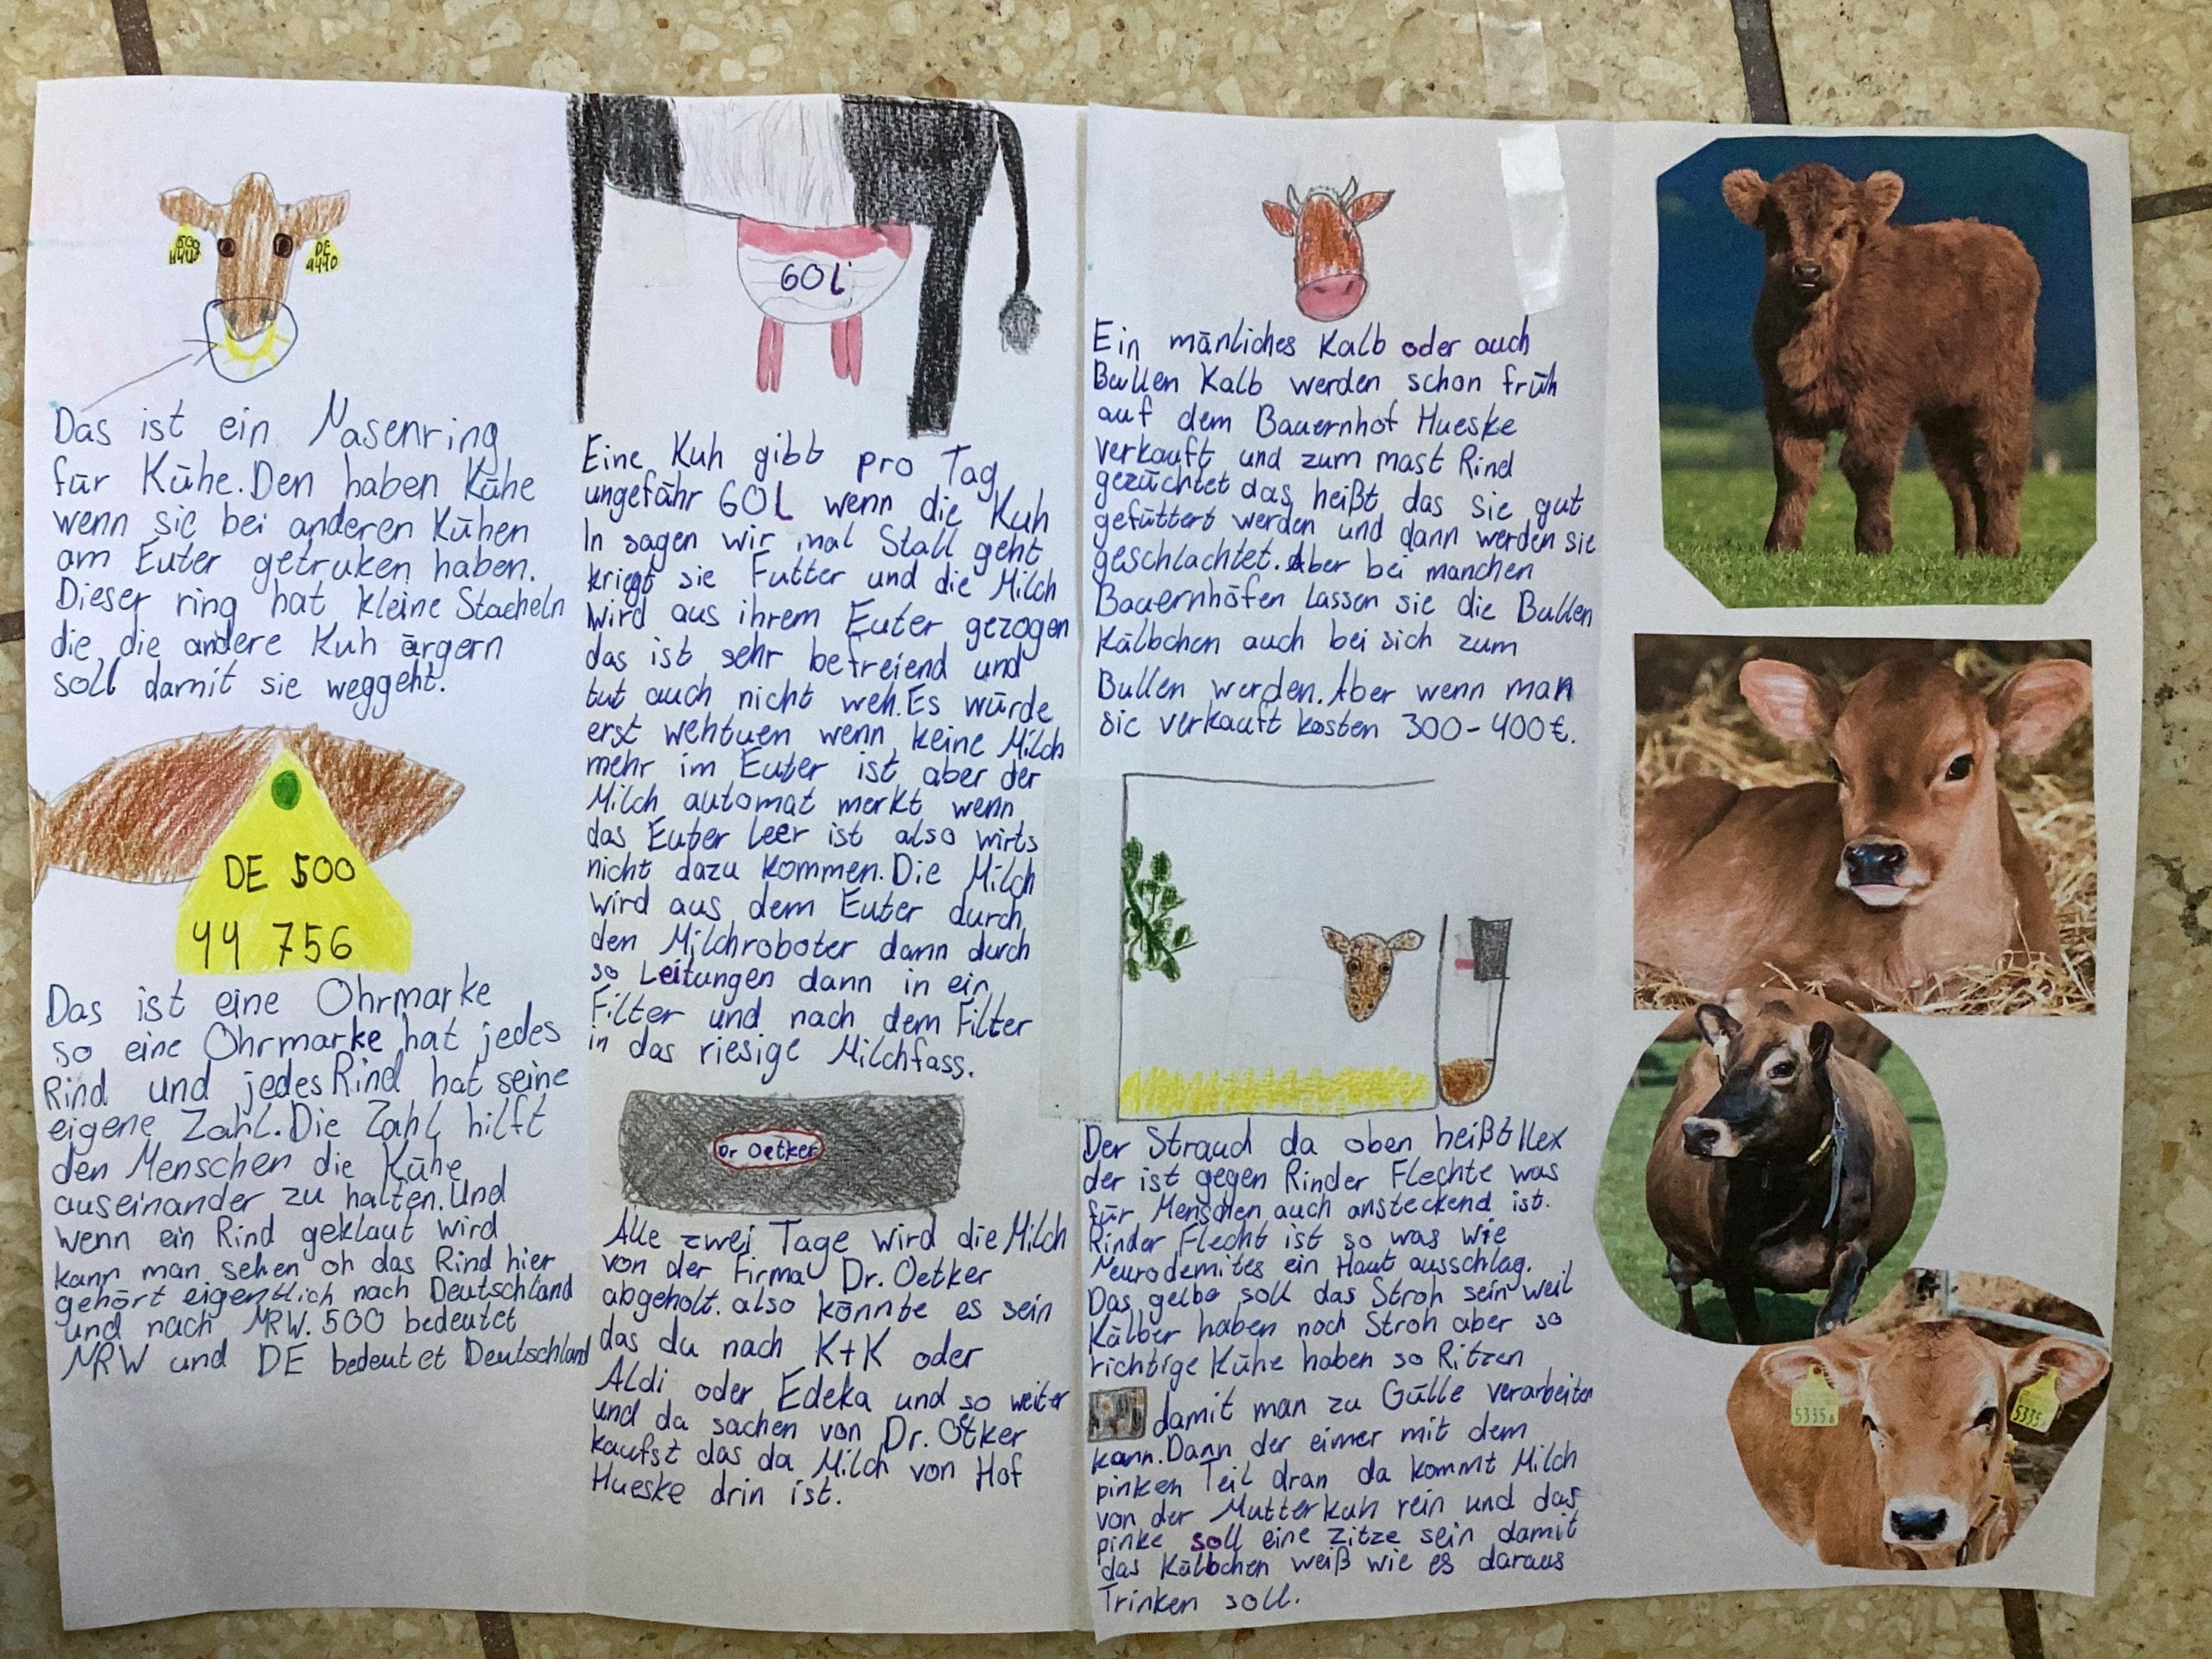 500
DE
4440
Das ist ein Nasenring
für Kühe. Den haben Kühe
wenn sie bei anderen Kühen
am Euter getruken haben.
Dieser ring hat kleine Stacheln
die die andere Kuh ärgern
soll damit sie weggeht.
DE 500
44 756
Das ist eine Ohrmarke
so eine Ohrmarke hat jedes
Rind und jedes Rind hat seine
eigene Zahl. Die Zahl hilft
den Menschen die Kühe
auseinander zu halten. Und
wenn ein Rind geklaut wird
kann man sehen oh das Rind hier
gehört eigentlich nach Deutschland
und nach NRW. 500 bedeutet
NRW und DE bedeutet Deutschland
60l
Eine Kuh gibt pro Tag
ungefähr 60L wenn die Kuh
In sagen wir mal Stall geht
kriegt sie Futter und die Milch
wird aus ihrem Euter gezogen
das ist sehr befreiend und
tut auch nicht weh. Es würde
erst wehtuen wenn keine Milch
mehr im Euter ist aber der
Milch automat merkt wenn
das Euter leer ist also wirts
nicht dazu kommen. Die Milch
wird aus dem Euter durch
den Milchroboter dann durch
so Leitungen dann in ein
Filter und nach dem Filter
in das riesige Milchfass.
Dr Oetker
Alle zwei Tage wird die Milch
von der Firma Dr. Oetker
abgeholt. also könnte es sein
das du nach K+K oder
Aldi oder Edeka und so weiter
und da sachen von Dr. Ötker
kaufst das da Milch von Hof
Hueske drin ist.
Ein mänliches Kalb oder auch
Bullen Kalb werden schon früh
auf dem Bauernhof Hueske
verkauft und zum mast Rind
gezüchtet das heißt das sie gut
gefüttert werden und dann werden sie
geschlachtet. Aber bei manchen
Bauernhöfen lassen sie die Bullen
Kälbchen auch bei sich zum
Bullen werden. Aber wenn man
sie verkauft kosten 300-400€.
Der Strauch da oben heißt Ilex
der ist gegen Rinder Flechte was
für Menschen auch ansteckend ist.
Rinder Flecht ist so was wie
Neurodemites ein Haut ausschlag.
Das gelbe soll das Stroh sein weil
Kälber haben noch Stroh aber so
richtige Kühe haben so Ritzen
damit man zu Gülle verarbeiten
kann. Dann der eimer mit dem
pinken Teil dran da kommt Milch
von der Mutterkuh rein und das
pinke soll eine Zitze sein damit
das Kälbchen weiß wie es daraus
Trinken soll.
5335
5335